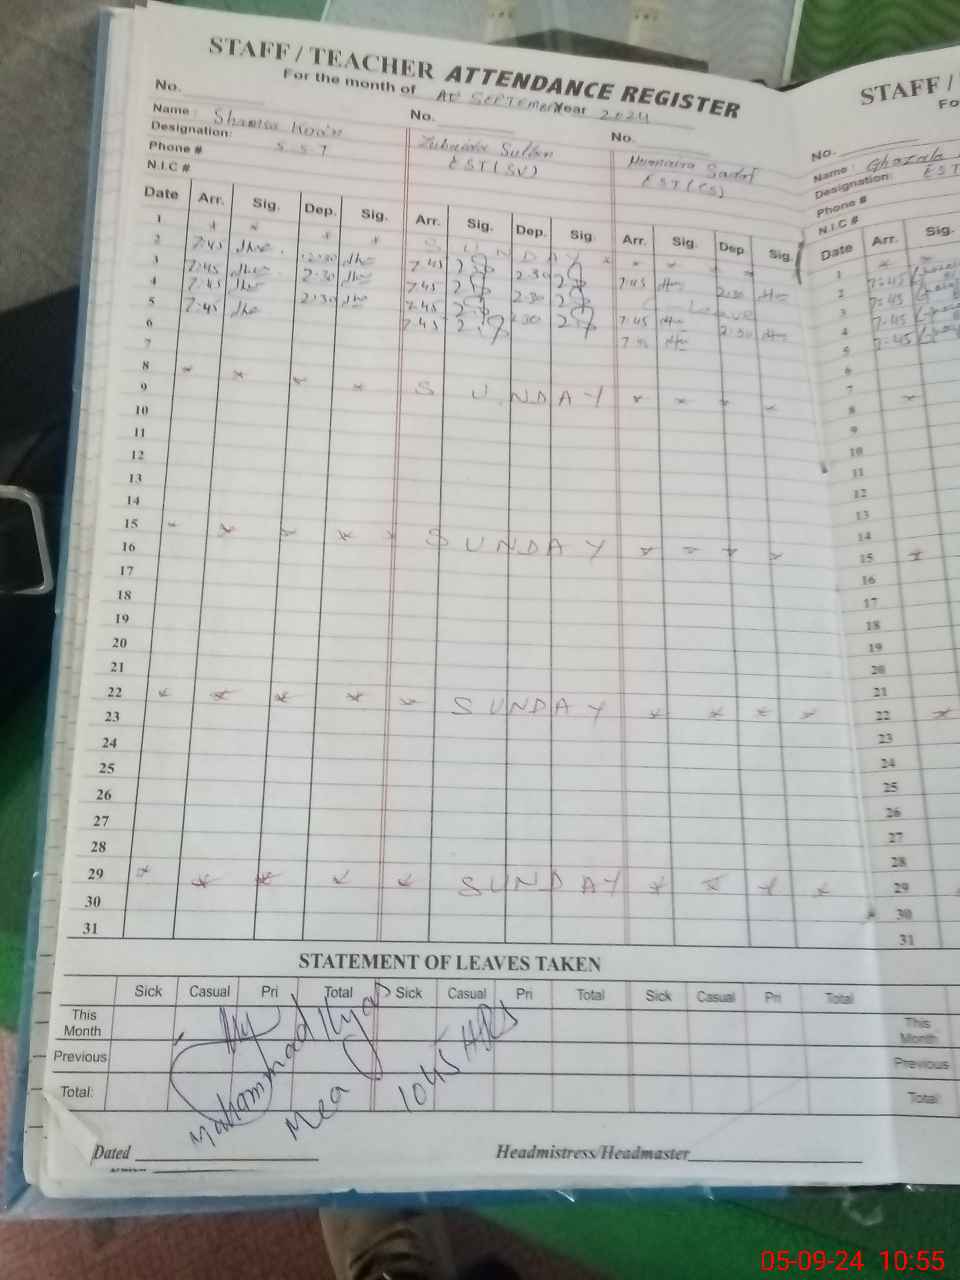 STAFF / TEACHER ATTENDANCE REGISTER
For the month of SEPTEMBER Year 2024
No. No. No.
Name : Shamsa Zubaida Sultan Humaira Sadaf
Designation: S S T EST(SV) EST(CS)
Phone #
N.I.C #
Date Arr. Sig. Dep. Sig. Arr. Sig. Dep. Sig. Arr. Sig. Dep Sig.
1 SUNDAY
2 7:45 2:30 7:45 2:30 7:45 2:30
3 7:45 2:30 7:45 2:30 Leave
4 7:45 2:30 7:45 2:30 7:45 2:30
5 7:45 7:45
6
7
8 SUNDAY
9
10
11
12
13
14
15 SUNDAY
16
17
18
19
20
21
22 SUNDAY
23
24
25
26
27
28
29 SUNDAY
30
31
STATEMENT OF LEAVES TAKEN
Sick Casual Pri Total Sick Casual Pri Total Sick Casual Pri Total
This Month
Previous
Total:
Muhammad Ilyas
Mea
1045 HRS
Dated Headmistress/Headmaster
STAFF /
No.
Name : Ghazala
Designation: EST
Phone #
N.I.C #
Date Arr. Sig.
1
2 7:45
3 7:45
4 7:45
5 7:45
6
7
8
9
10
11
12
13
14
15
16
17
18
19
20
21
22
23
24
25
26
27
28
29
30
31
This Month
Previous
Total
05-09-24 10:55